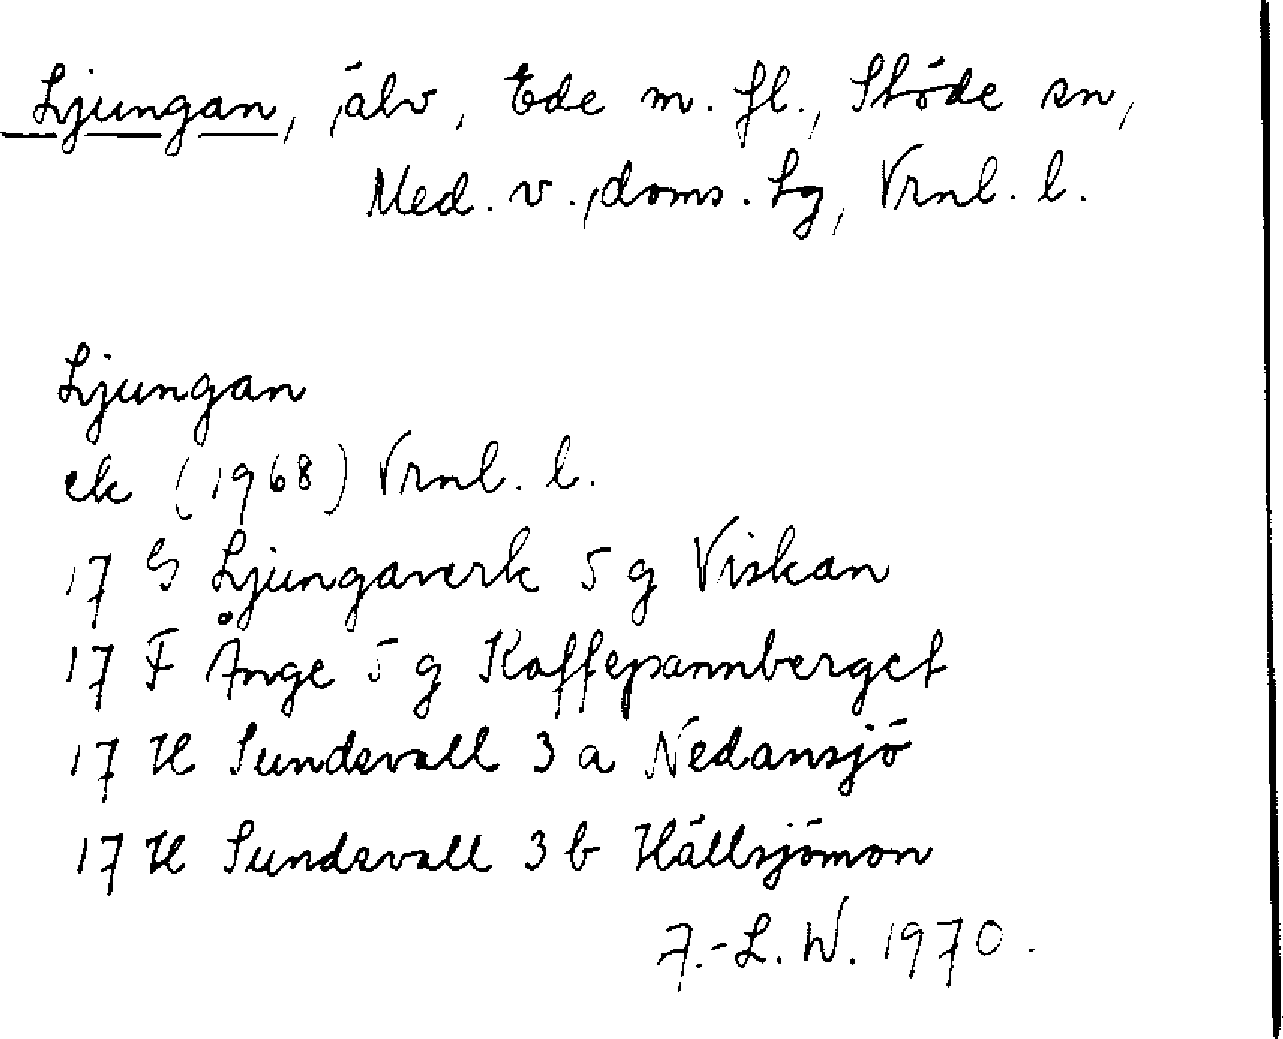 Ljungan, älv, Ede m. fl., Stöde sn,
Med. v. doms. hg, Vrnl. l.
Ljungan
ek (1968) Vrnl. l.
17 G Ljungaverk 5 g Viskan
17 F Ånge 5 g Kaffepannberget
17 H Sundsvall 3 a Nedansjö
17 H Sundsvall 3 b Hällsjömon
7.-L. W. 1970.